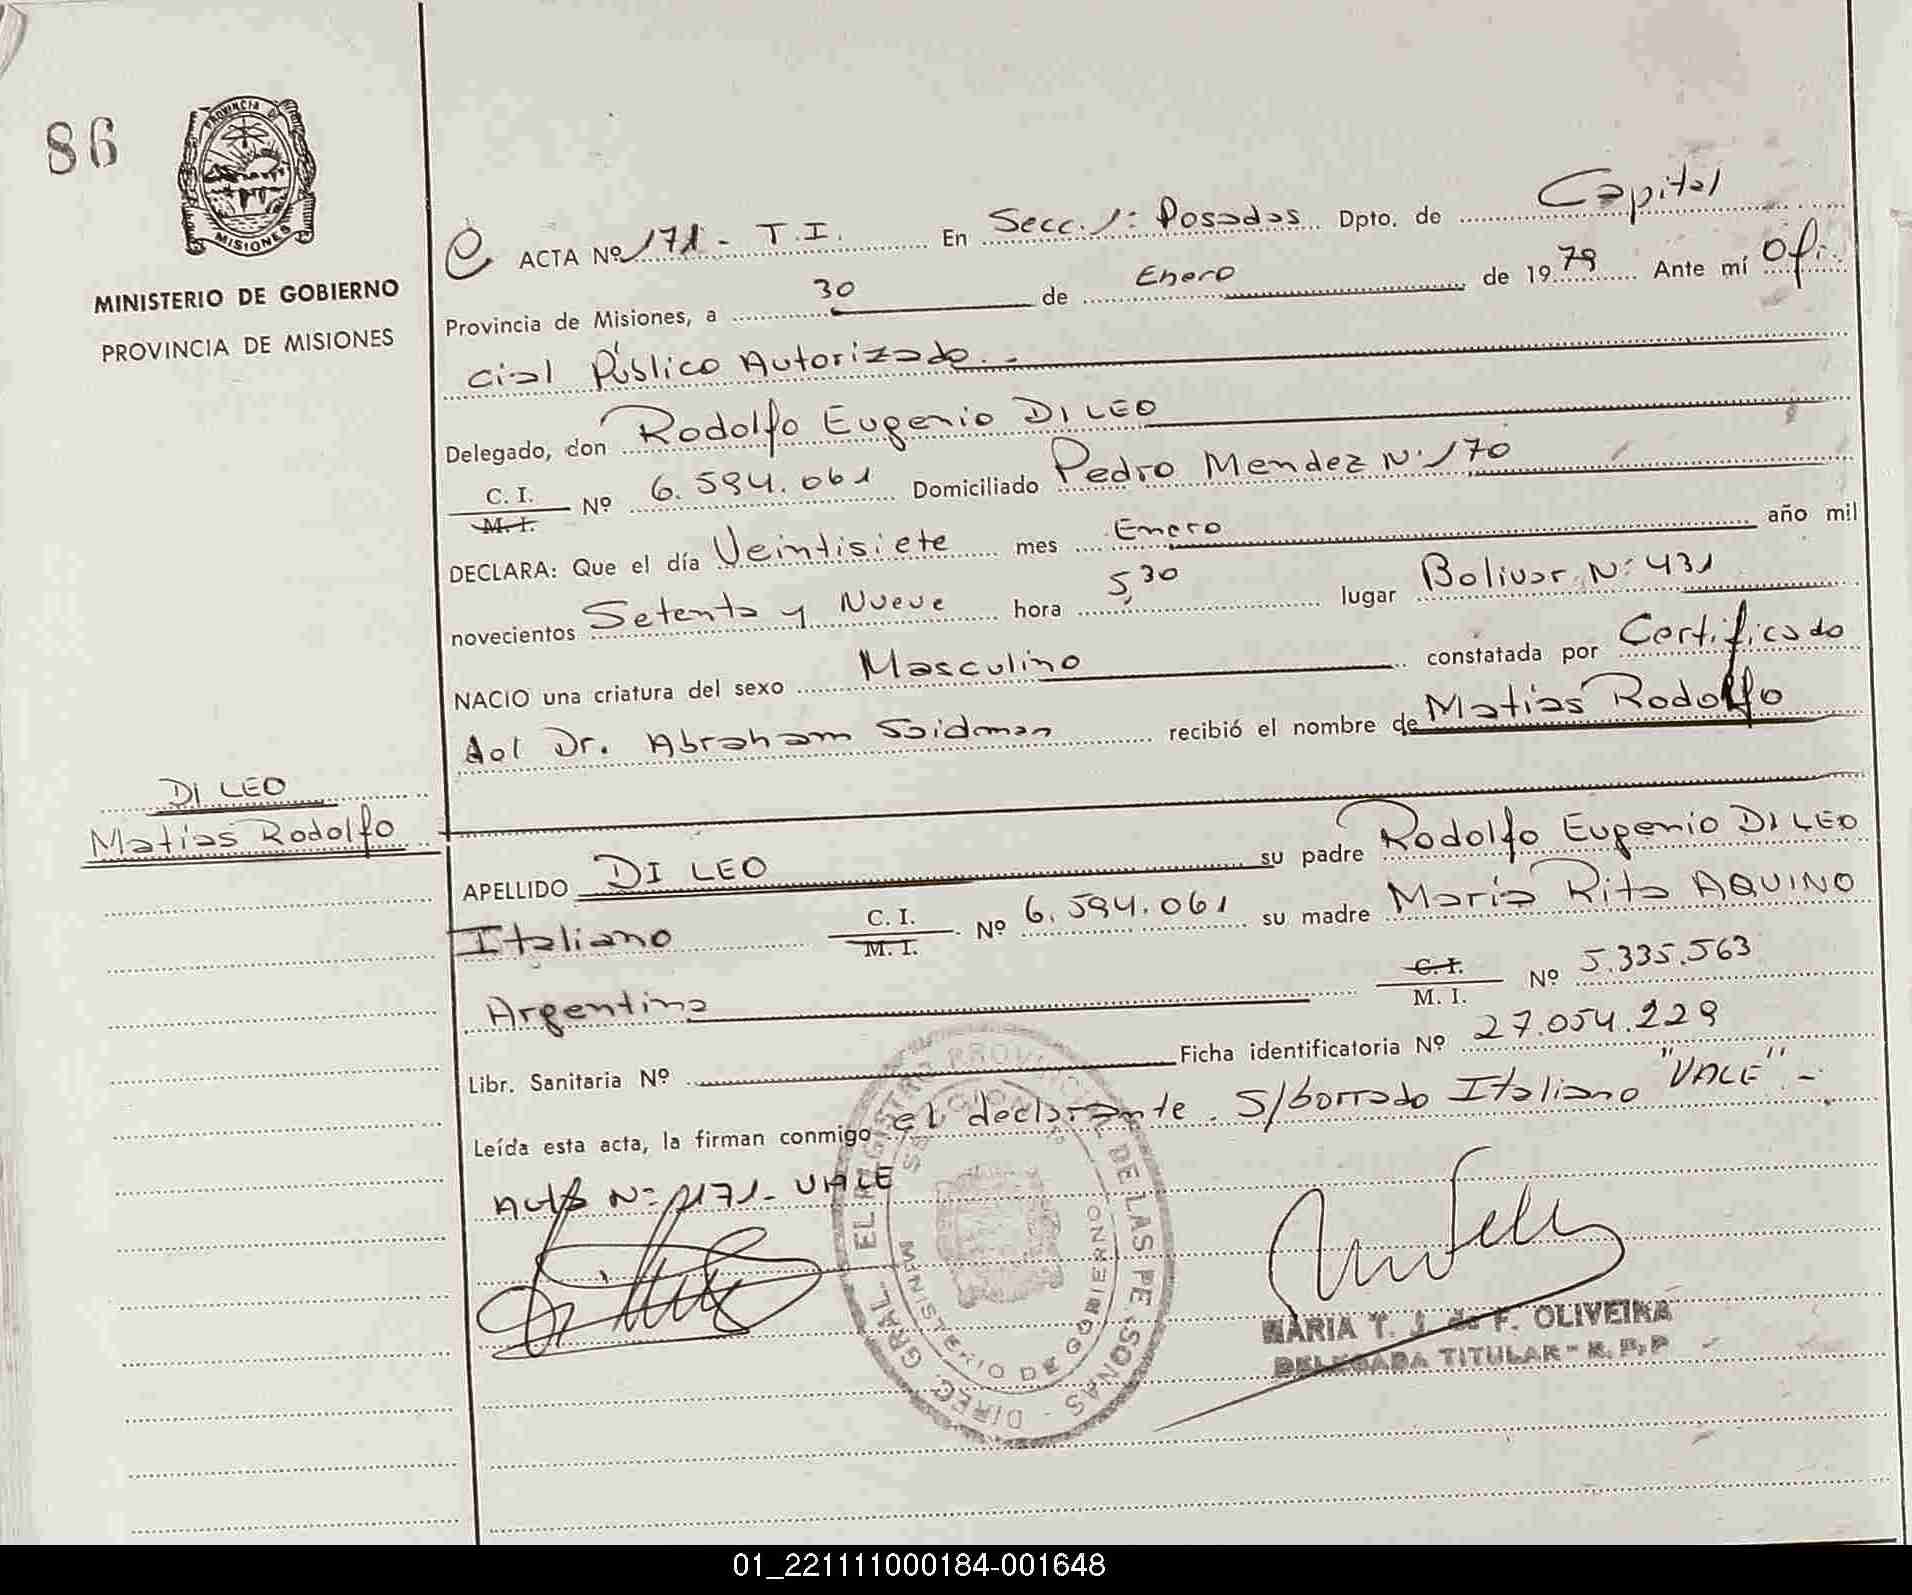 86
PROVINCIA DE
MISIONES
MINISTERIO DE GOBIERNO
PROVINCIA DE MISIONES
ACTA Nº 171 - T.I. En Secc. 1: Posadas Dpto. de Capital
Provincia de Misiones, a 30 de Enero de 1979 Ante mí Ofi-
cial Público Autorizado. -
Delegado, don Rodolfo Eugenio DI LEO
C. I. / M. I. Nº 6.594.061 Domiciliado Pedro Mendez N: 170
DECLARA: Que el día Veintisiete mes Enero año mil
novecientos Setenta y Nueve hora 5,30 lugar Bolivar N: 431
NACIO una criatura del sexo Masculino constatada por Certificado
del Dr. Abraham Saidman recibió el nombre de Matias Rodolfo
DI LEO
Matias Rodolfo
APELLIDO DI LEO su padre Rodolfo Eugenio DI LEO
Italiano C. I. / M. I. Nº 6.594.061 su madre Maria Rita AQUINO
Argentina C. I. / M. I. Nº 5.335.563
Libr. Sanitaria Nº Ficha identificatoria Nº 27.054.229
Leída esta acta, la firman conmigo el declarante. S/borrado Italiano "VALE" -
N: 171 - VALE
DIREC. GRAL. EL REGISTRO PROVINCIAL DE LAS PERSONAS -
MINISTERIO DE GOBIERNO
MARIA T. J. de F. OLIVEIRA
DELEGADA TITULAR - R. P. P
01_221111000184-001648